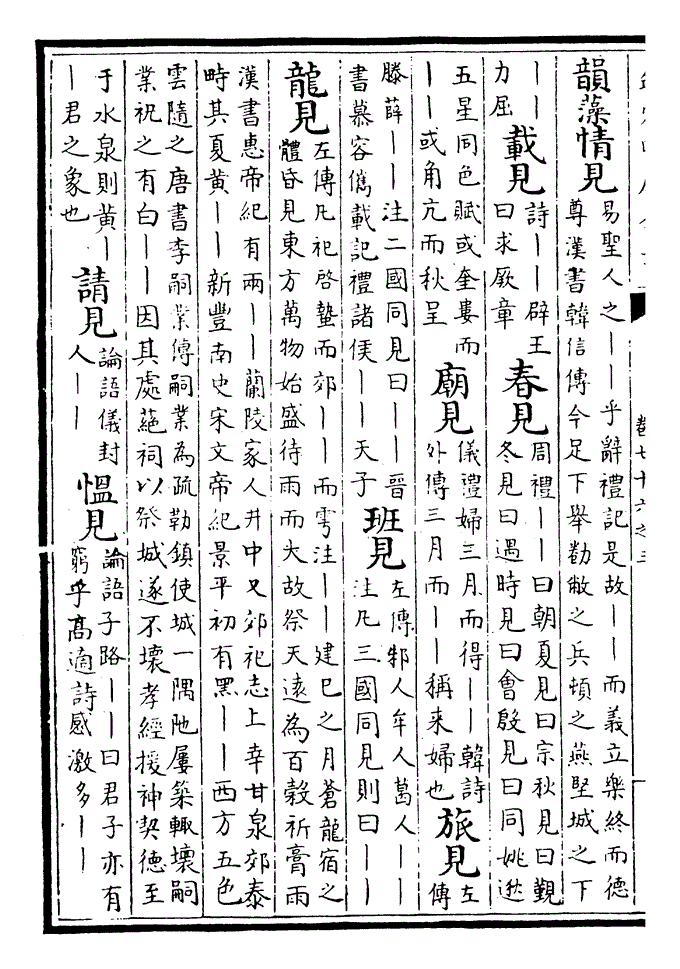 卷七十六之三
韻藻情見易聖人之——乎辭禮記是故——而義立樂終而德
尊漢書韓信傳今足下舉勌敝之兵頓之燕堅城之下
——
力屈
載見詩——辟王
曰求厥章
春見周禮——曰朝夏見曰宗秋見曰覲
冬見曰遇時見曰會殷見曰同姚逖
五星同色賦或奎婁而
——或角亢而秋呈
廟見儀禮婦三月而得——韓詩
外傳三月而——稱来婦也
旅見左
傳
滕薛——注二國同見曰——晉
書慕容儁載記禮諸侯——天子
班見左傳邾人牟人葛人——
注凡三國同見則曰——
龍見左傳凡祀啓蟄而郊——而雩注——建巳之月蒼龍宿之
體昏見東方萬物始盛待雨而大故祭天遠為百穀祈膏雨
漢書惠帝紀有兩——蘭陵家人井中又郊祀志上幸甘泉郊泰
時其夏黄——新豐南史宋文帝紀景平初有黑——西方五色
雲隨之唐書李嗣業傳嗣業為疏勒鎮使城一隅阤屢築輒壞嗣
業祝之有白——因其處葩祠以祭城遂不壞孝經援神契德至
于水泉則黄—
—君之象也
請見論語儀封
人——
愠見論語子路——曰君子亦有
窮乎高適詩感激多——